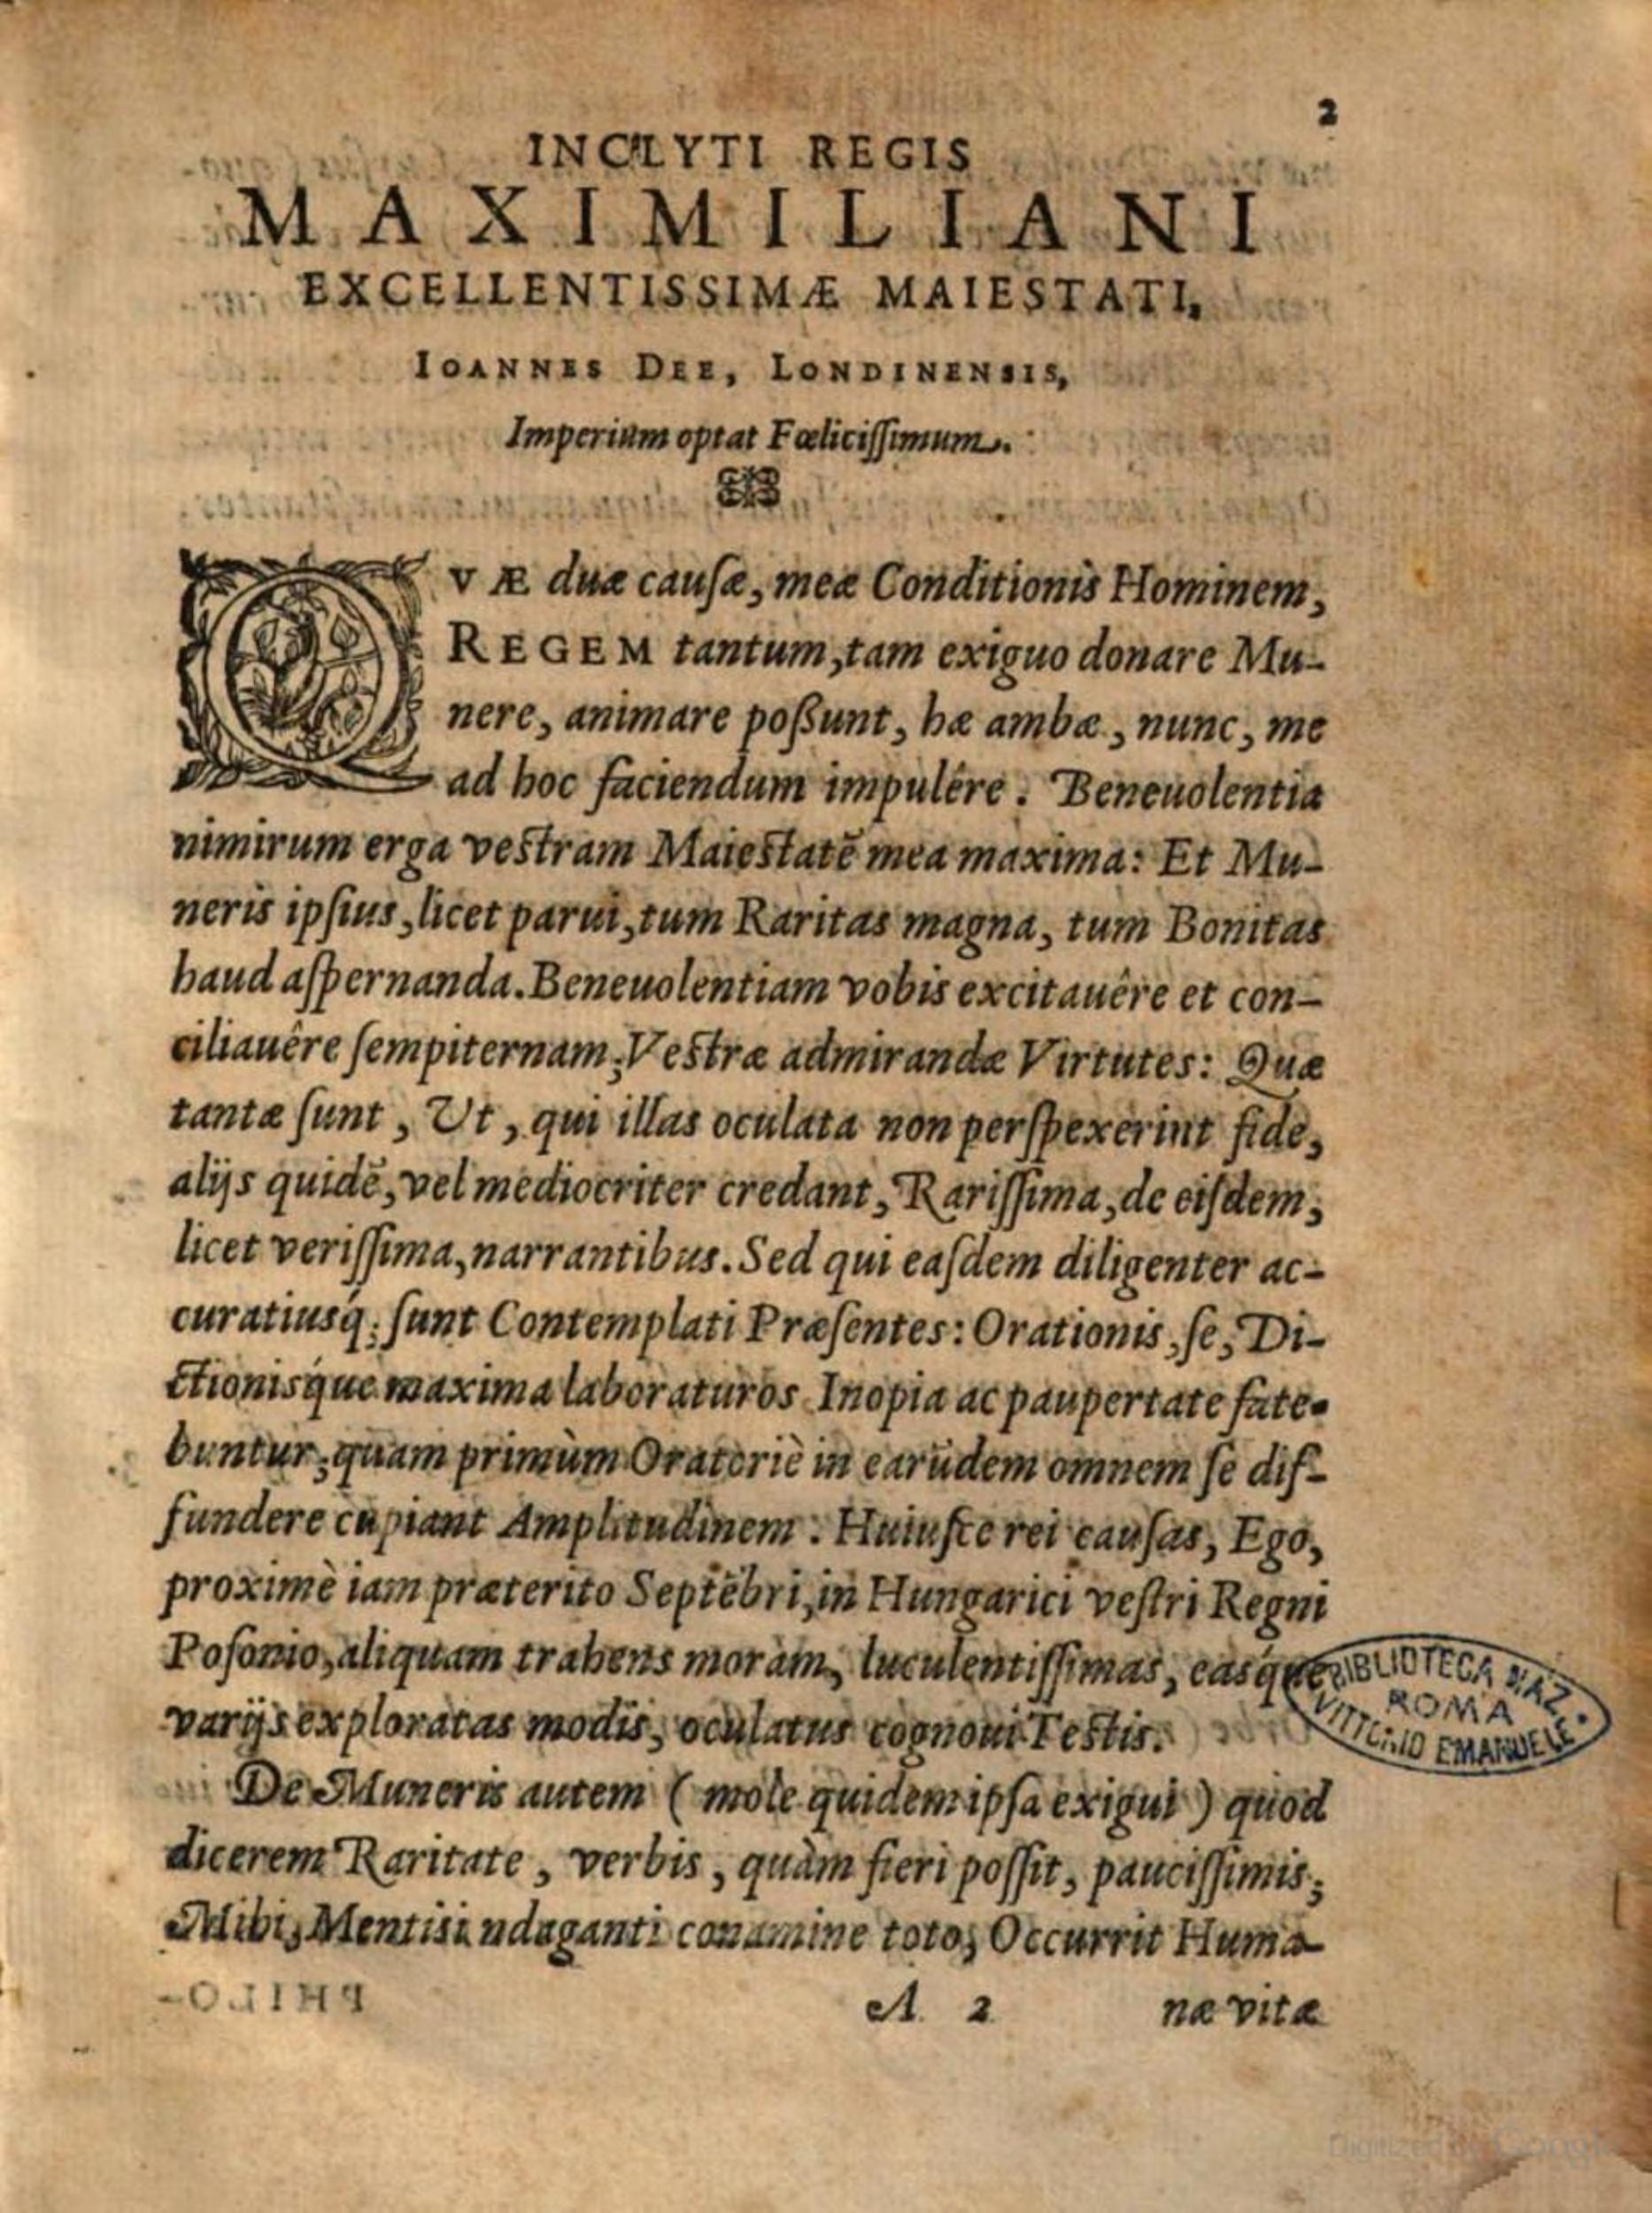 2
INCLYTI REGIS
MAXIMILIANI
EXCELLENTISSIMÆ MAIESTATI,
IOANNES DEE, LONDINENSIS,
Imperium optat Fœliciſſimum.
QVÆ duæ cauſæ, meæ Conditionis Hominem,
REGEM tantum, tam exiguo donare Mu-
nere, animare poßunt, hæ ambæ, nunc, me
ad hoc faciendum impulêre. Beneuolentia
nimirum erga veſtram Maieſtatē mea maxima: Et Mu-
neris ipſius, licet parui, tum Raritas magna, tum Bonitas
haud aſpernanda. Beneuolentiam vobis excitauêre et con-
ciliauêre ſempiternam, Veſtræ admirandæ Virtutes: Quæ
tantæ ſunt, Ut, qui illas oculata non perſpexerint fide,
alijs quidē, vel mediocriter credant, Rariſſima, de eiſdem,
licet veriſſima, narrantibus. Sed qui eaſdem diligenter ac-
curatiusq́; ſunt Contemplati Præſentes: Orationis, ſe, Di-
ctionisq́ue maxima laboraturos Inopia ac paupertate fate-
buntur, quam primùm Oratoriè in earūdem omnem ſe dif-
fundere cupiant Amplitudinem. Huiuſce rei cauſas, Ego,
proximè iam præterito Septēbri, in Hungarici veſtri Regni
Poſonio, aliquam trahens moram, luculentiſſimas, easq́ue
varijs exploratas modis, oculatus cognoui Teſtis.
De Muneris autem ( mole quidem ipſa exigui ) quod
dicerem Raritate, verbis, quàm fieri poſſit, pauciſſimis;
Mihi, Mentis indaganti conamine toto, Occurrit Huma-
A 2 næ vitæ
BIBLIOTECA NAZ.
ROMA
VITTORIO EMANUELE
Digitized by Google